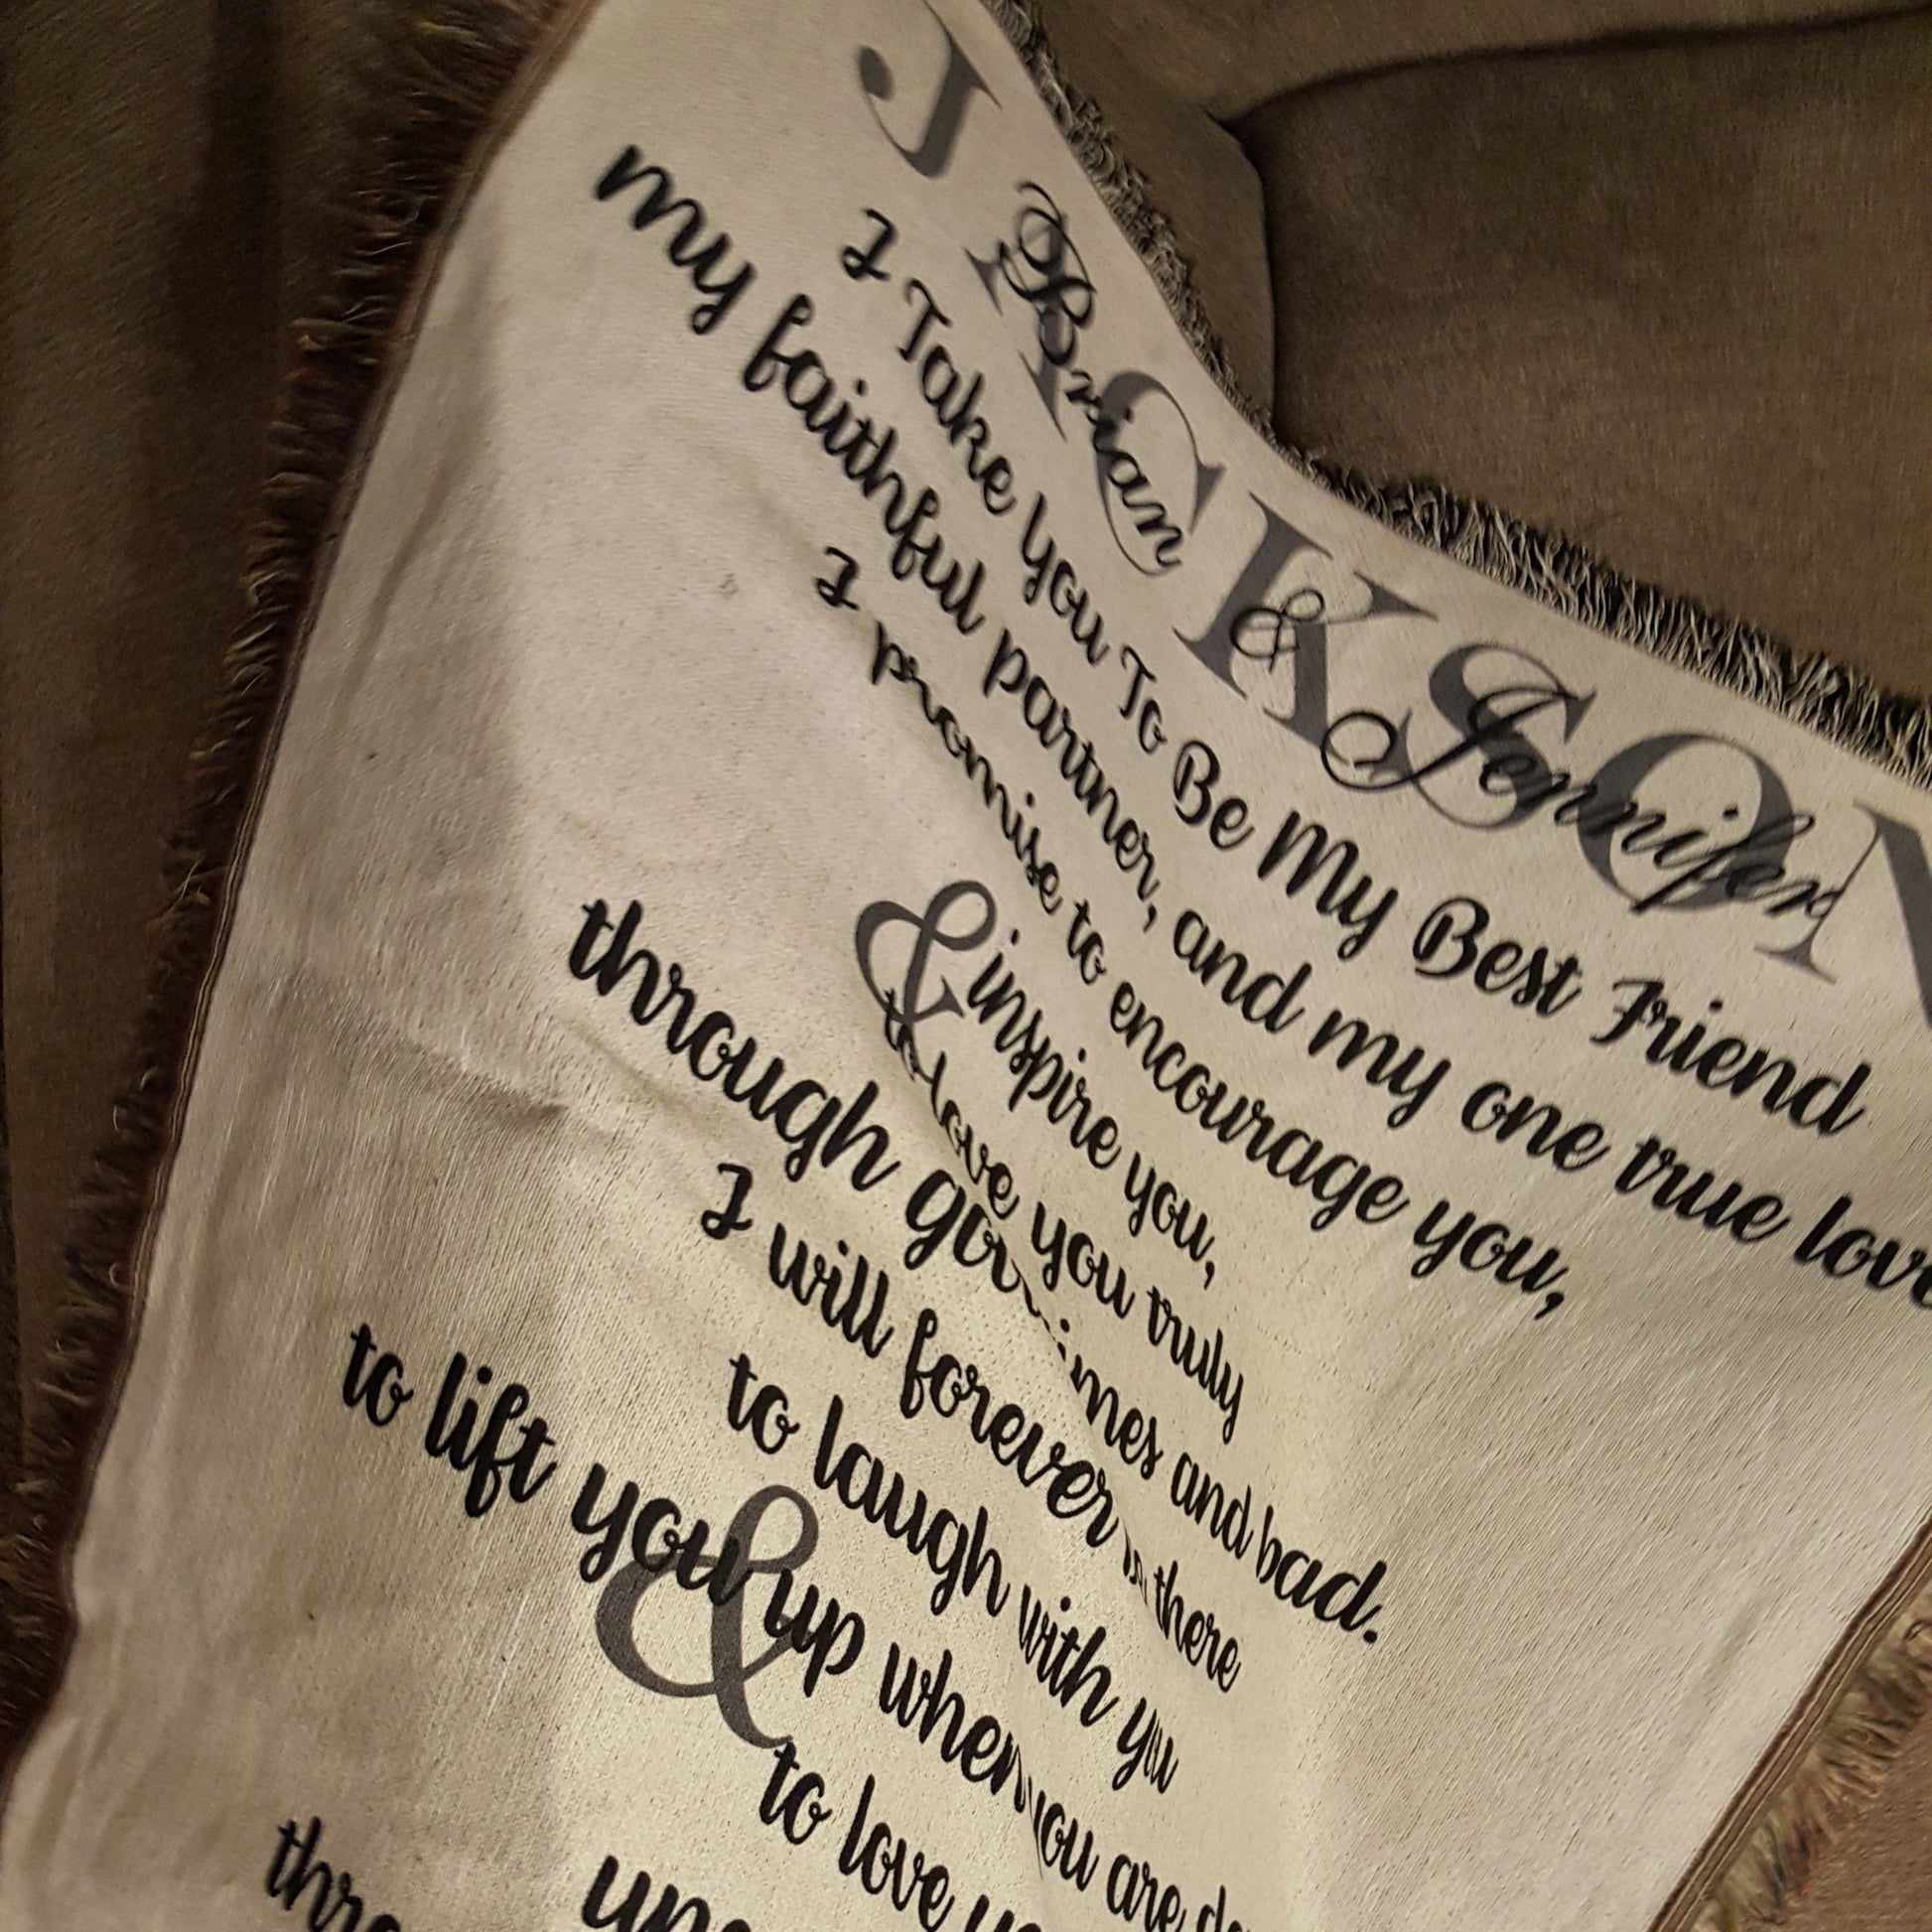 JACKSON
Brian & Jennifer
I Take You To Be My Best Friend
my faithful partner, and my one true love
I promise to encourage you,
& inspire you,
to love you truly
through good times and bad.
I will forever be there
to laugh with you
to lift you up when you are
&
to love